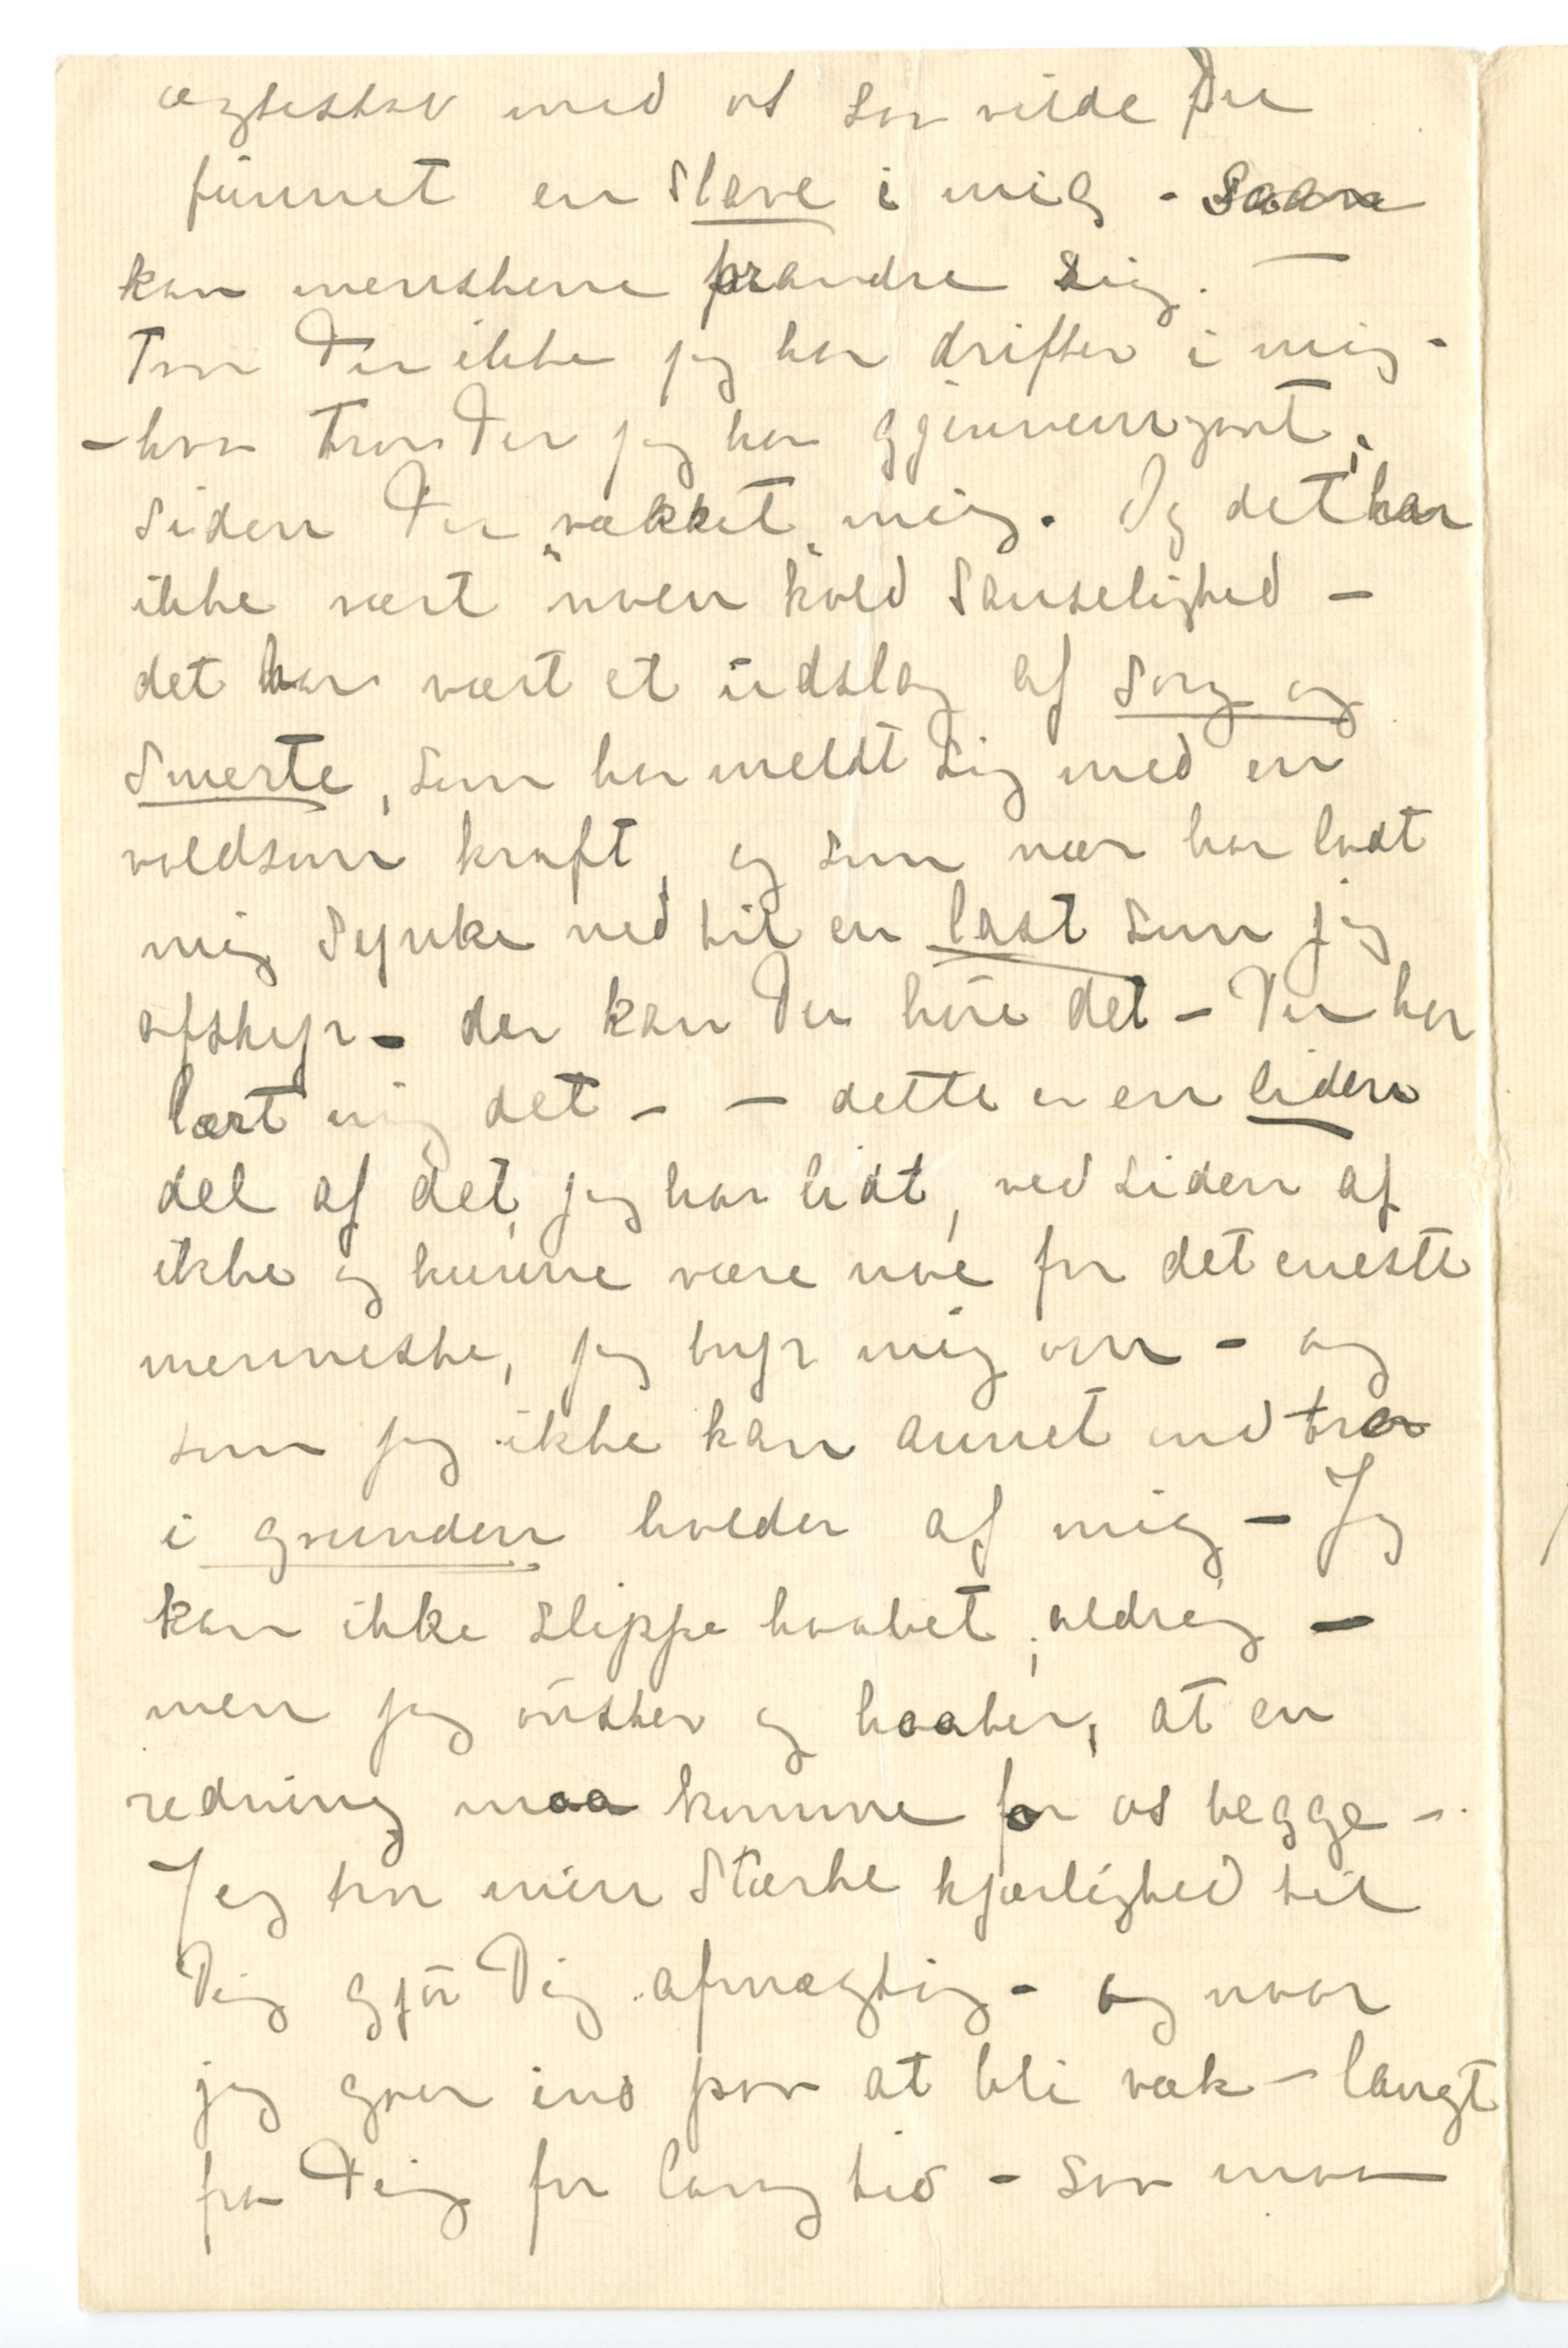 ægteskab med os saa vilde Du
funnet en slave i mig - saan
kan menskene forandre sig. —
Tror Du ikke jeg har drifter i mig -
- hva tror Du jeg har gjennemgaat,
siden Du „vækket“ mig. Og det har
ikke vært noen kold sanselighed —
det har vært et udslag af sorg og
smerte, som har meldt sig med en
voldsom kraft, og som nær har ladt
mig synke ned til en last som jeg
afskyr - der kan Du høre det — Du har
lært mig det - — dette er en liden
del af det, jeg har lidt, ved siden af
ikke og kunne være noe for det eneste
menneske, jeg bryr mig om - og
som jeg ikke kan annet end tro
i grunden holder af mig — Jeg
kan ikke slippe haabet, aldrig —
men jeg ønsker og haaber, at en
redning maa komme for os begge -
Jeg tror min stærke kjærlighed til
Dig gjør Dig afmægtig - og naar
jeg gaar ind paa at bli væk - langt
fra Dig for lang tid - saa maa